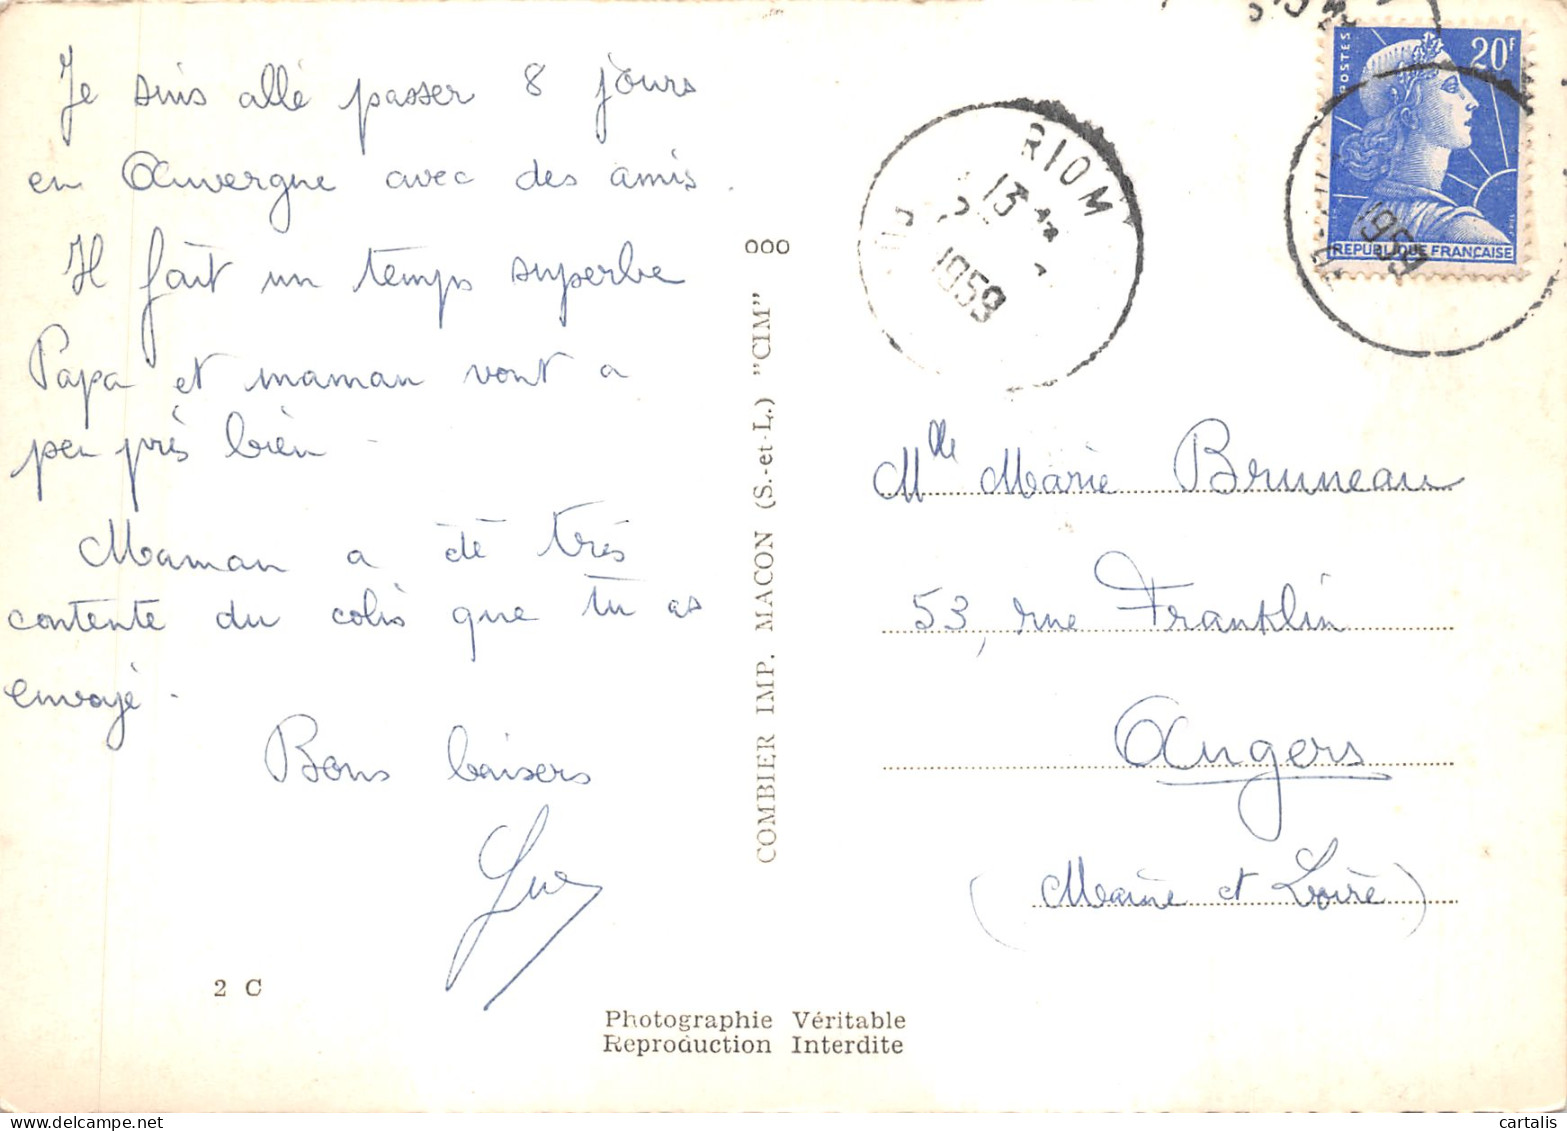 Je suis allé passer 8 jours
en Auvergne avec des amis.
Il fait un temps superbe
Papa et maman vont a
peu près bien -
Maman a été très
contente du colis que tu as
envoyé -
Bons baisers
2 C
COMBIER IMP. MACON (S.-et-L.) "CIM"
Photographie Véritable
Reproduction Interdite
RIOM
13
1959
POSTES
20F
REPUBLIQUE FRANÇAISE
1959
Mlle Marie Bruneau
53, rue Franklin
Angers
(Maine et Loire)
cartalis